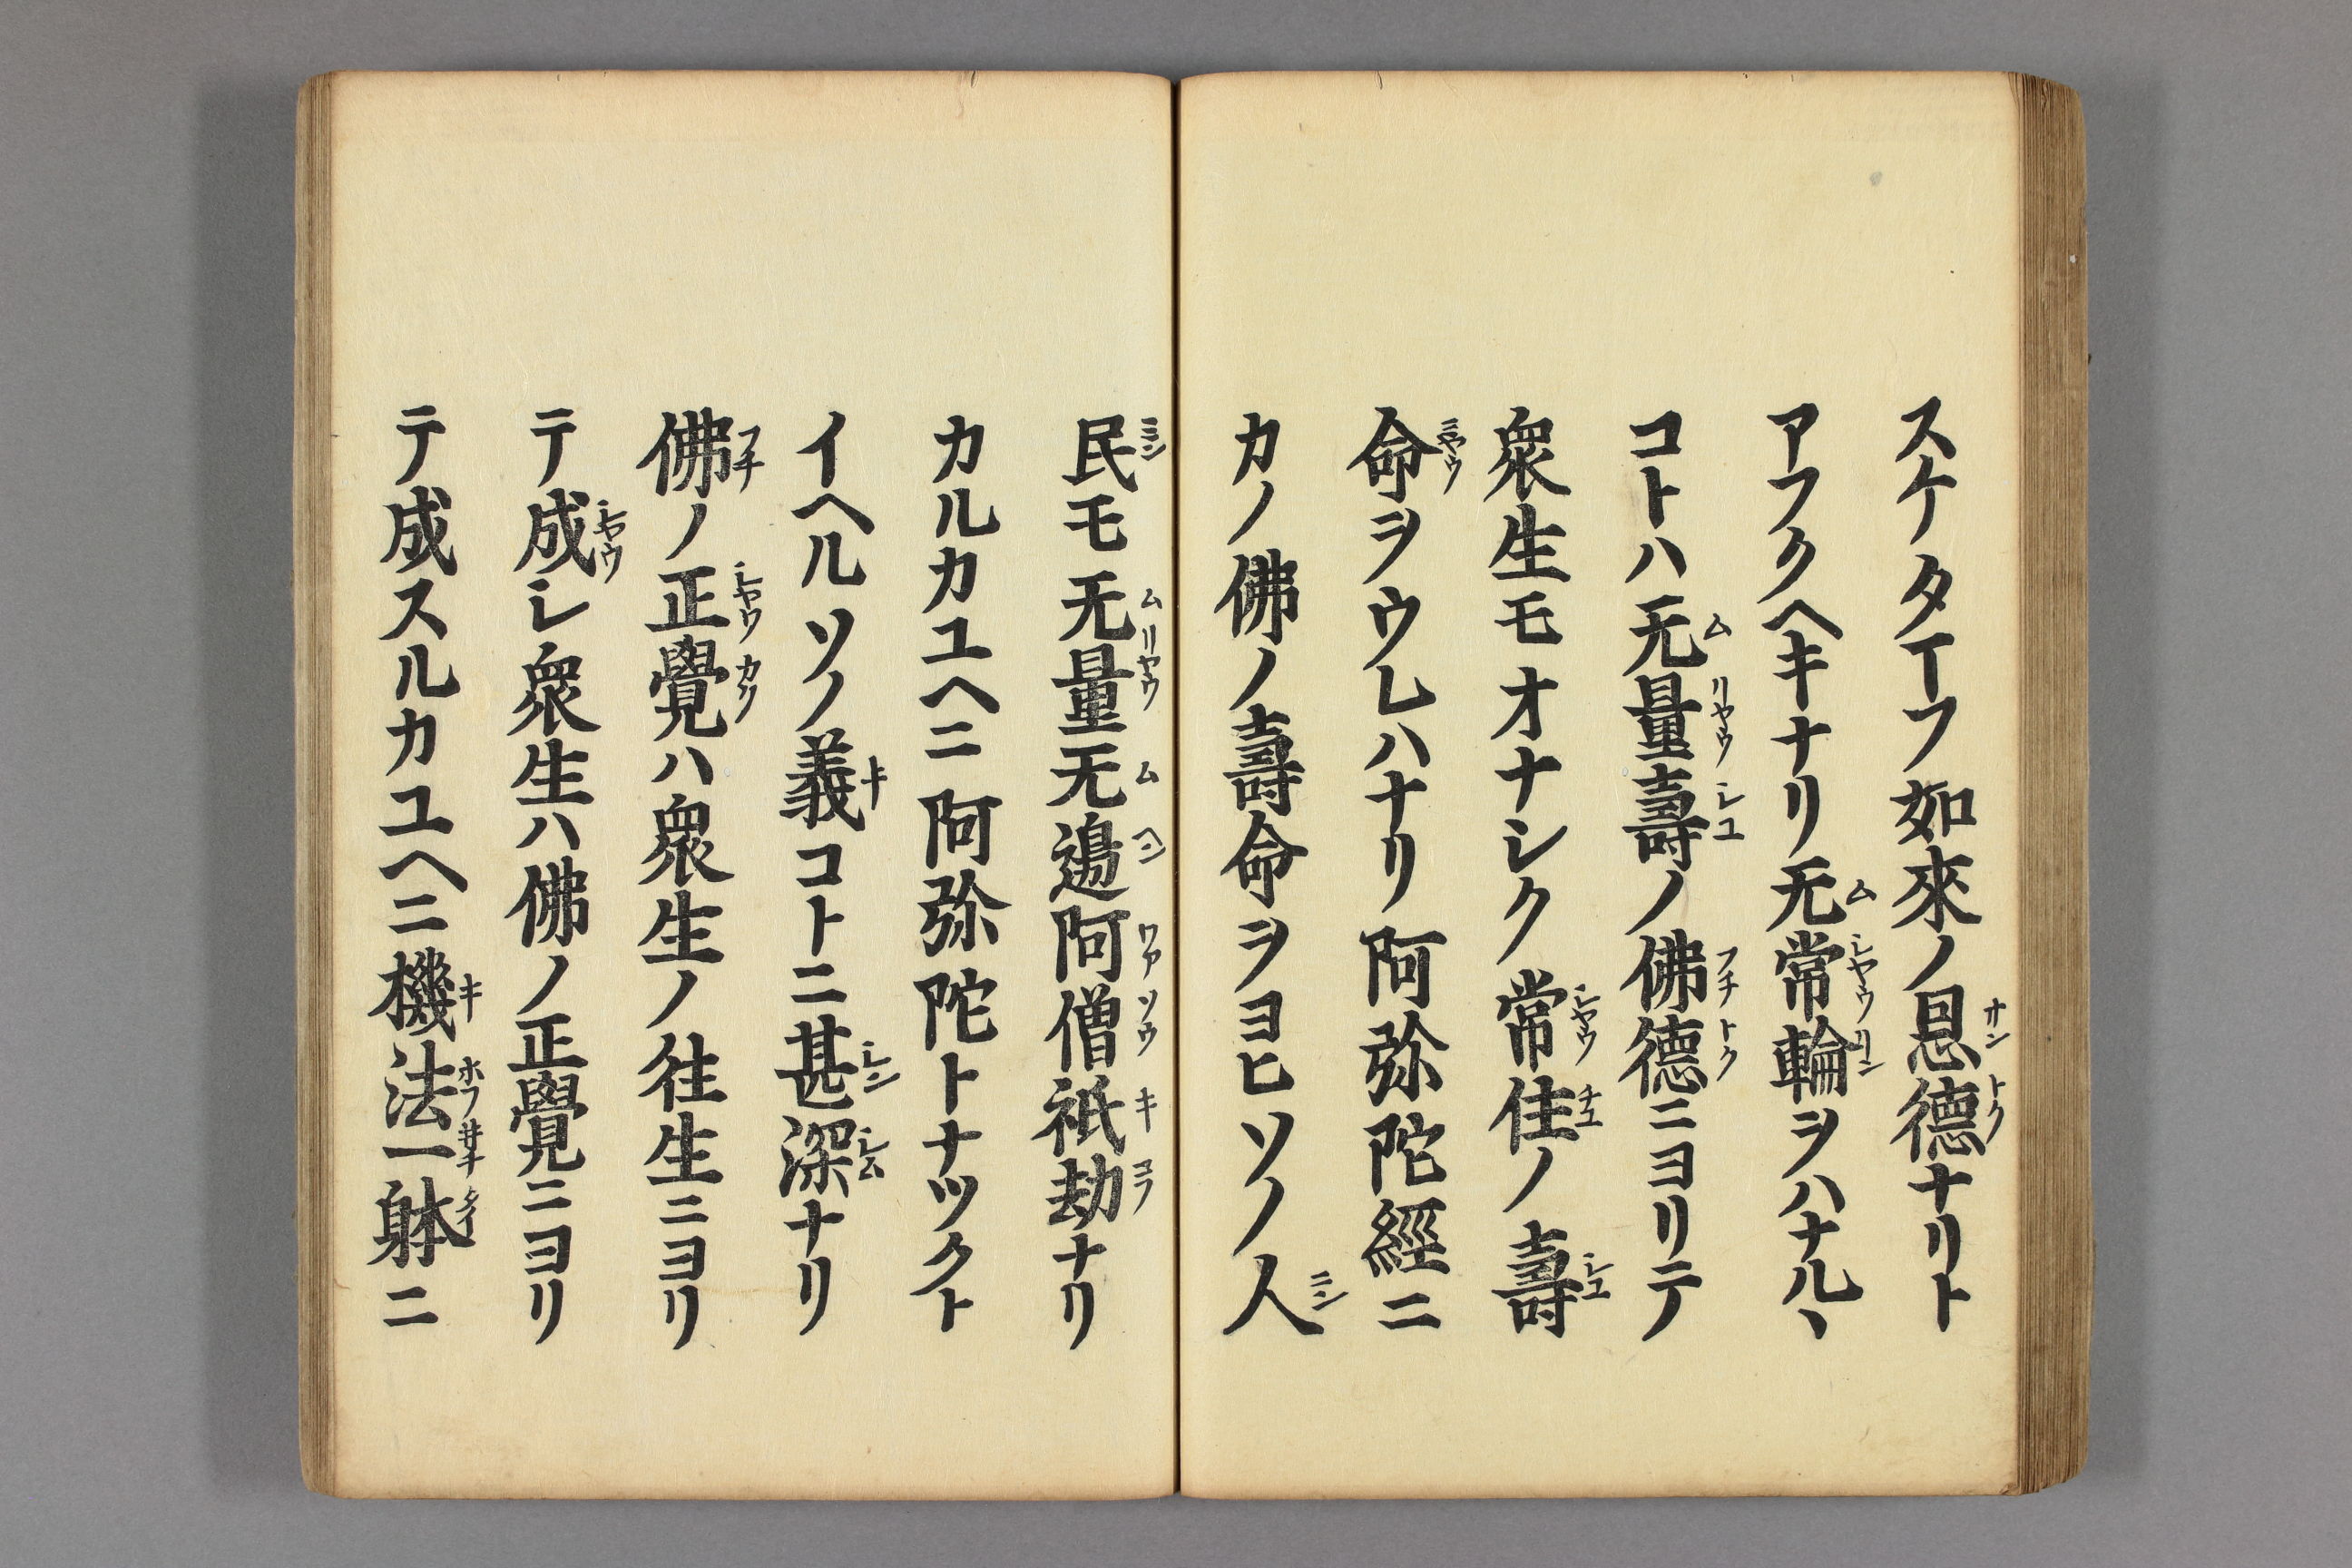 スケタマフ如來ノ恩德ナリト
アフクヘキナリ无常輪ヲハナルヽ
コトハ无量壽ノ佛德ニヨリテ
衆生モオナシク常住ノ壽
命ヲウレハナリ阿弥陀經ニ
カノ佛ノ壽命ヲヨヒソノ人
民モ无量无邊阿僧祇劫ナリ
カルカユヘニ阿弥陀トナツクト
イヘルソノ義コトニ甚深ナリ
佛ノ正覺ハ衆生ノ往生ニヨリ
テ成シ衆生ハ佛ノ正覺ニヨリ
テ成スルカユヘニ機法一躰ニ